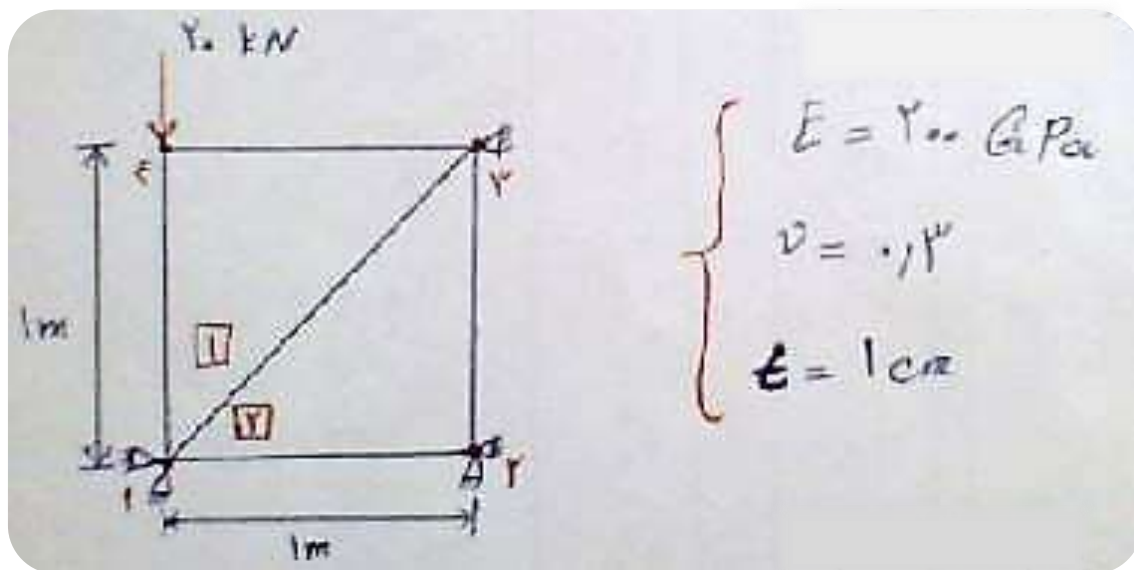 ۲۰ kN
۴
۳
1m
۱
۲
۱
۲
1m
E = ۲۰۰ GPa
ν = ۰,۳
t = 1 cm